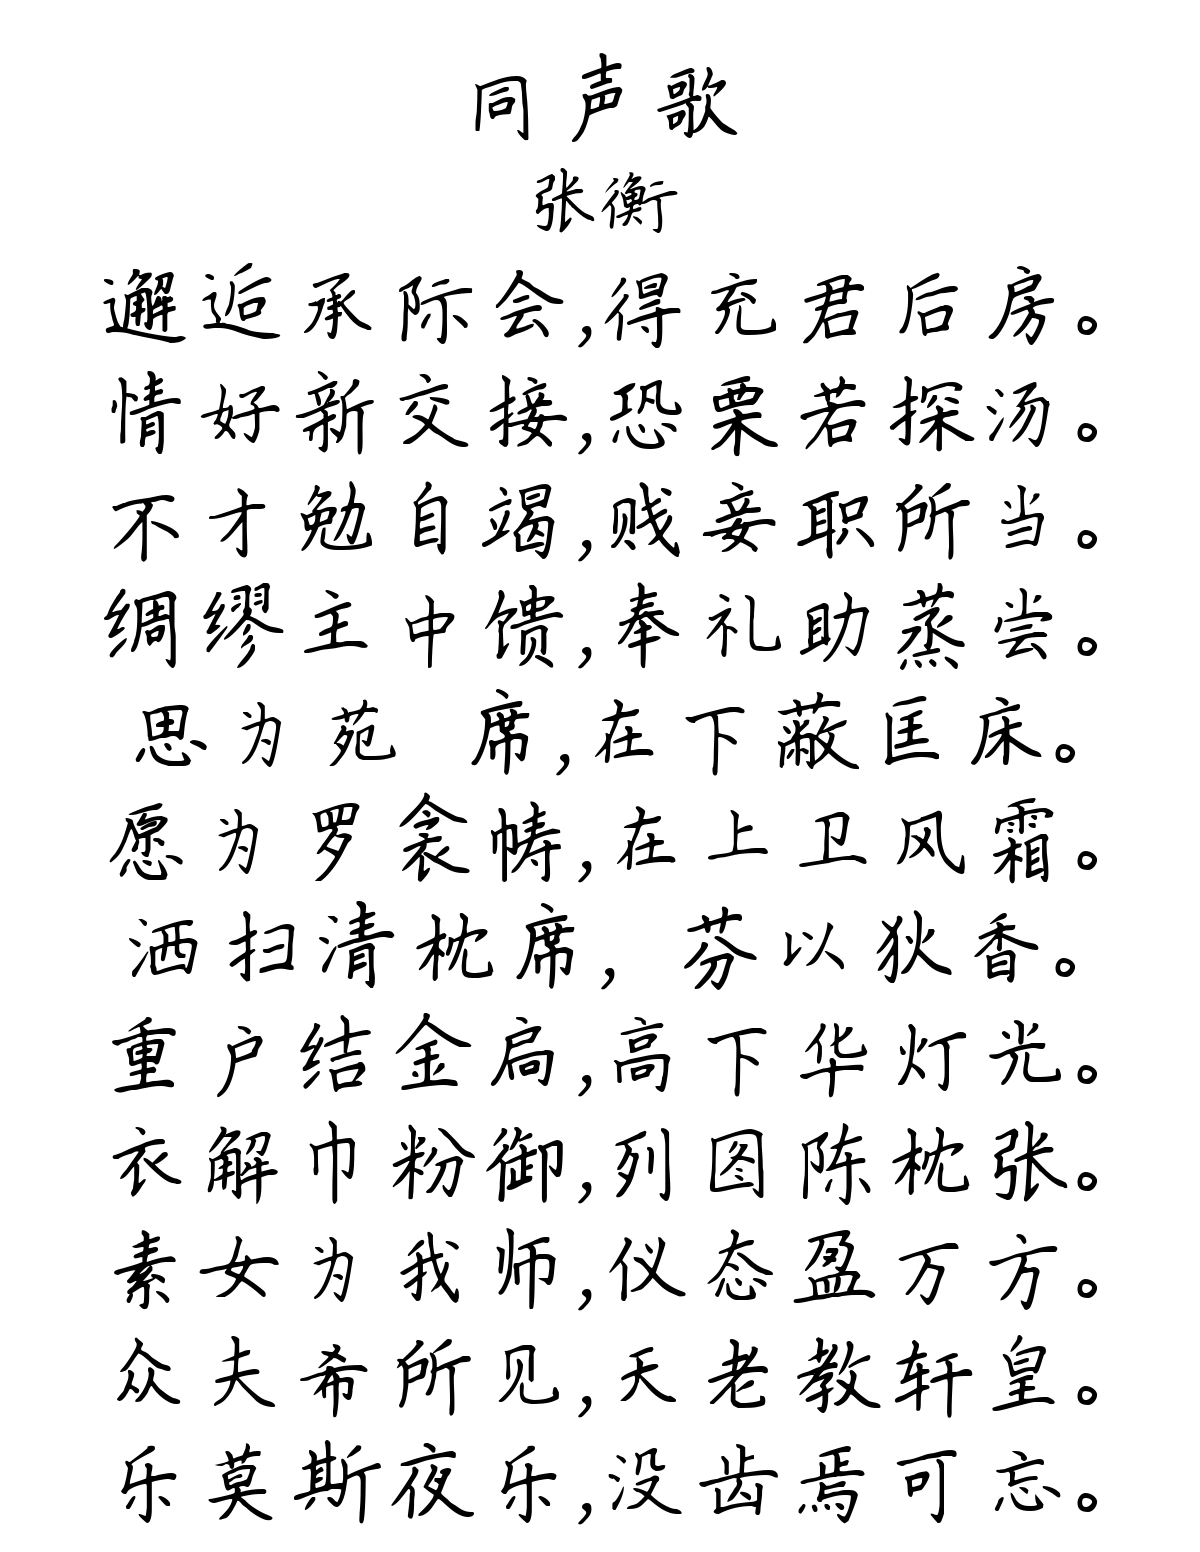 同声歌
张衡
邂逅承际会,得充君后房。
情好新交接,恐栗若探汤。
不才勉自竭,贱妾职所当。
绸缪主中馈,奉礼助蒸尝。
思为苑 席,在下蔽匡床。
愿为罗衾帱,在上卫风霜。
洒扫清枕席,芬以狄香。
重户结金扃,高下华灯光。
衣解巾粉御,列图陈枕张。
素女为我师,仪态盈万方。
众夫希所见,天老教轩皇。
乐莫斯夜乐,没齿焉可忘。